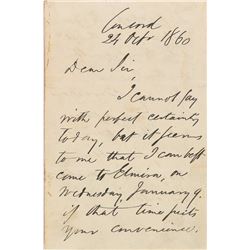 Concord
24 Oct 1860
Dear Sir,
I cannot say
with perfect certainty
today, but it seems
to me that I can best
come to Elmira, on
Wednesday, January 9.
if that time suits
your convenience.